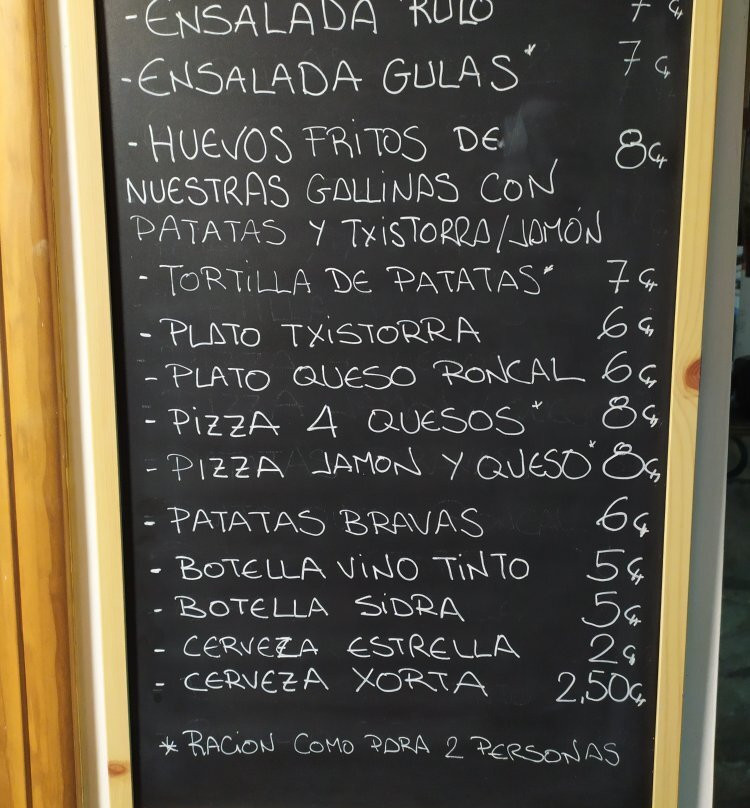 - ENSALADA RULO 7€
- ENSALADA GULAS* 7€
- HUEVOS FRITOS DE 8€
NUESTRAS GALLINAS CON
PATATAS Y TXISTORRA/JAMÓN
- TORTILLA DE PATATAS* 7€
- PLATO TXISTORRA 6€
- PLATO QUESO RONCAL 6€
- PIZZA 4 QUESOS* 8€
- PIZZA JAMON Y QUESO* 8€
- PATATAS BRAVAS 6€
- BOTELLA VINO TINTO 5€
- BOTELLA SIDRA 5€
- CERVEZA ESTRELLA 2€
- CERVEZA XORTA 2,50€
* RACION COMO PARA 2 PERSONAS